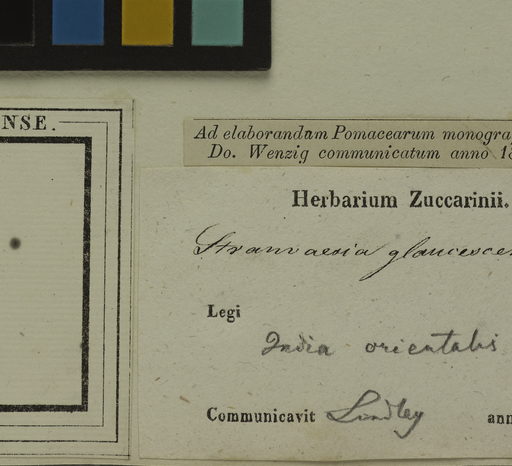 NSE.
Ad elaborandam Pomacearum monogra
Do. Wenzig communicatum anno 18
Herbarium Zuccarinii.
Stranvaesia glaucescen
Legi
India orientalis
Communicavit Lindley
ann